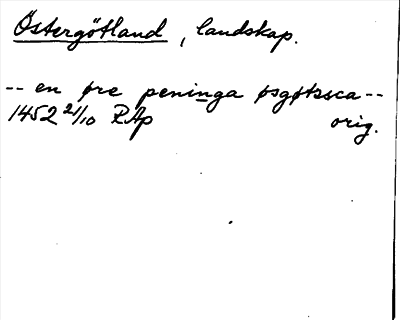 Östergötland, landskap.
-- en øre peninga øsgøtzsca --
1452 21/10 RAp orig.